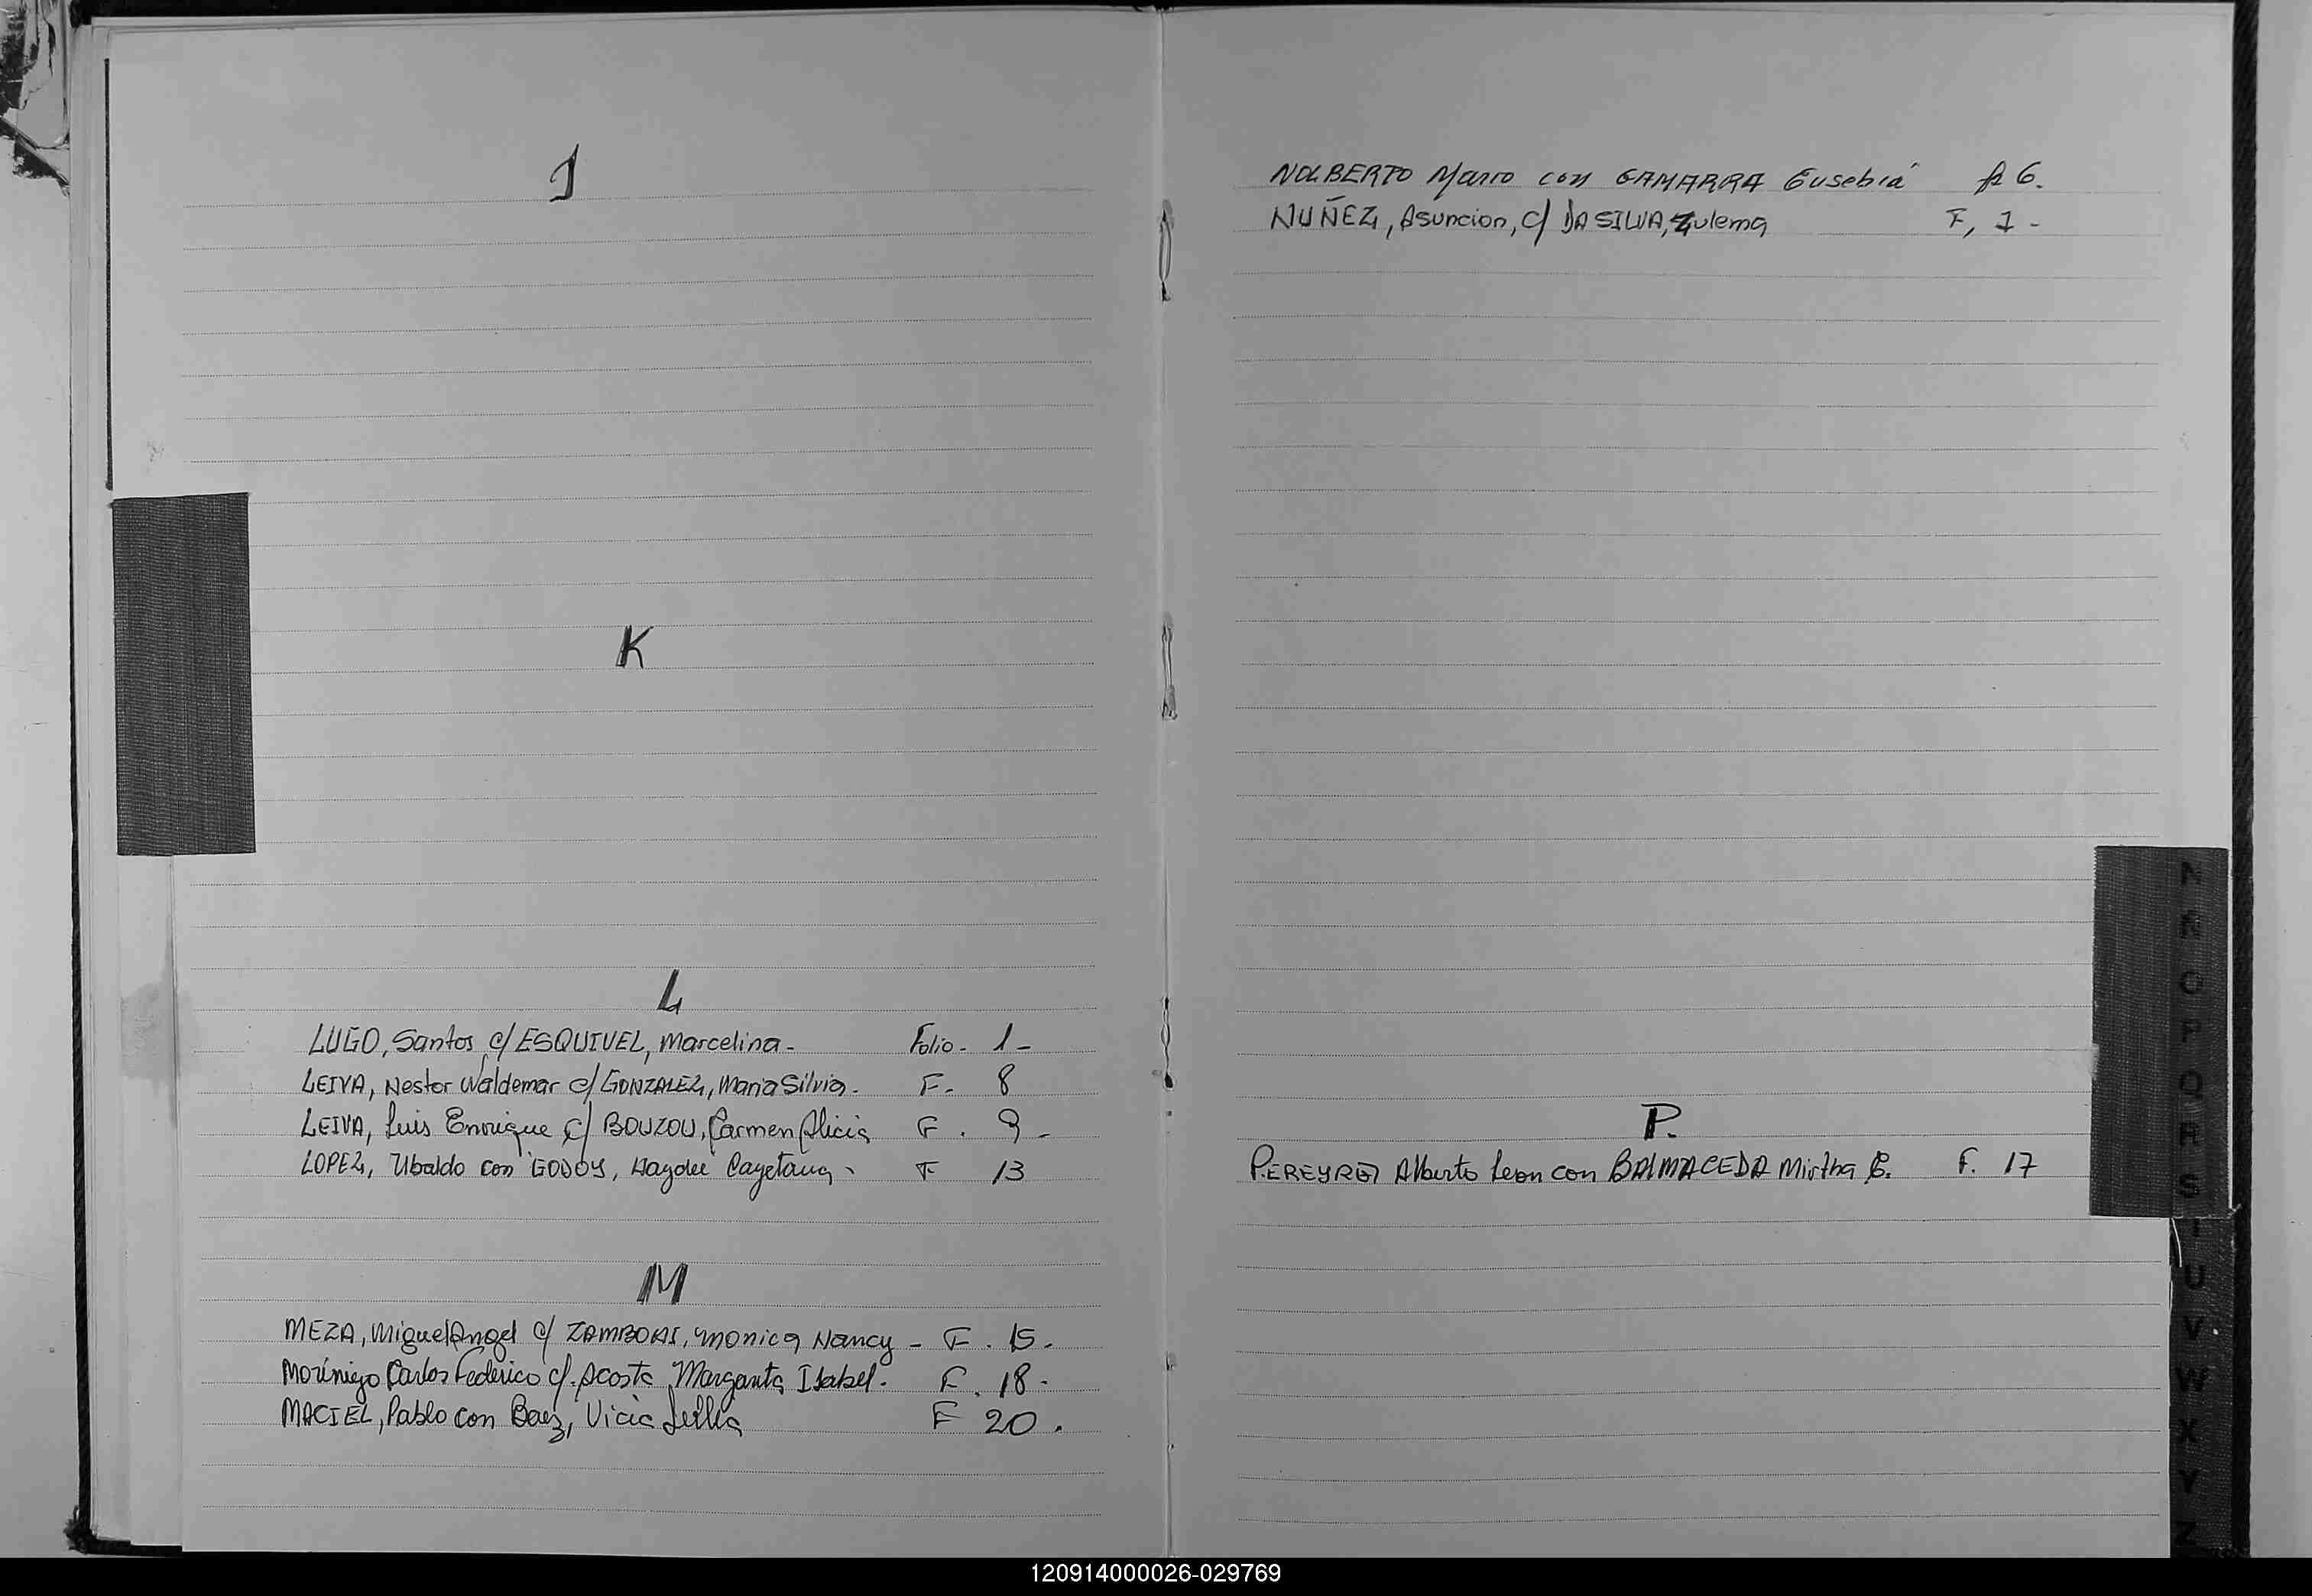 J
K
L
LUGO, Santos c/ ESQUIVEL, Marcelina - Folio - 1 -
LEIVA, Nestor Waldemar c/ GONZALEZ, Maria Silvia - F - 8
LEIVA, Luis Enrique c/ BOUZOU, Carmen Alicia F . 9 -
LOPEZ, Ubaldo con GODOY, Haydeé Cayetana - F 13
M
MEZA, Miguel Angel c/ ZAMBONI, Monica Nancy - F . 15 .
Moriñigo Carlos Federico c/. Acosta Margarita Isabel . F . 18 -
MACIEL, Pablo con Baez, F 20 .
NOLBERTO Mario con GAMARRA Eusebia 6.
NUÑEZ, Asuncion, c/ DA SILVA, Zulema F, 1 -
P.
Alberto Leon con BALMACEDA Mirtha F. 17
N
Ñ
O
P
Q
R
S
T
U
V
W
X
Y
Z
120914000026-029769